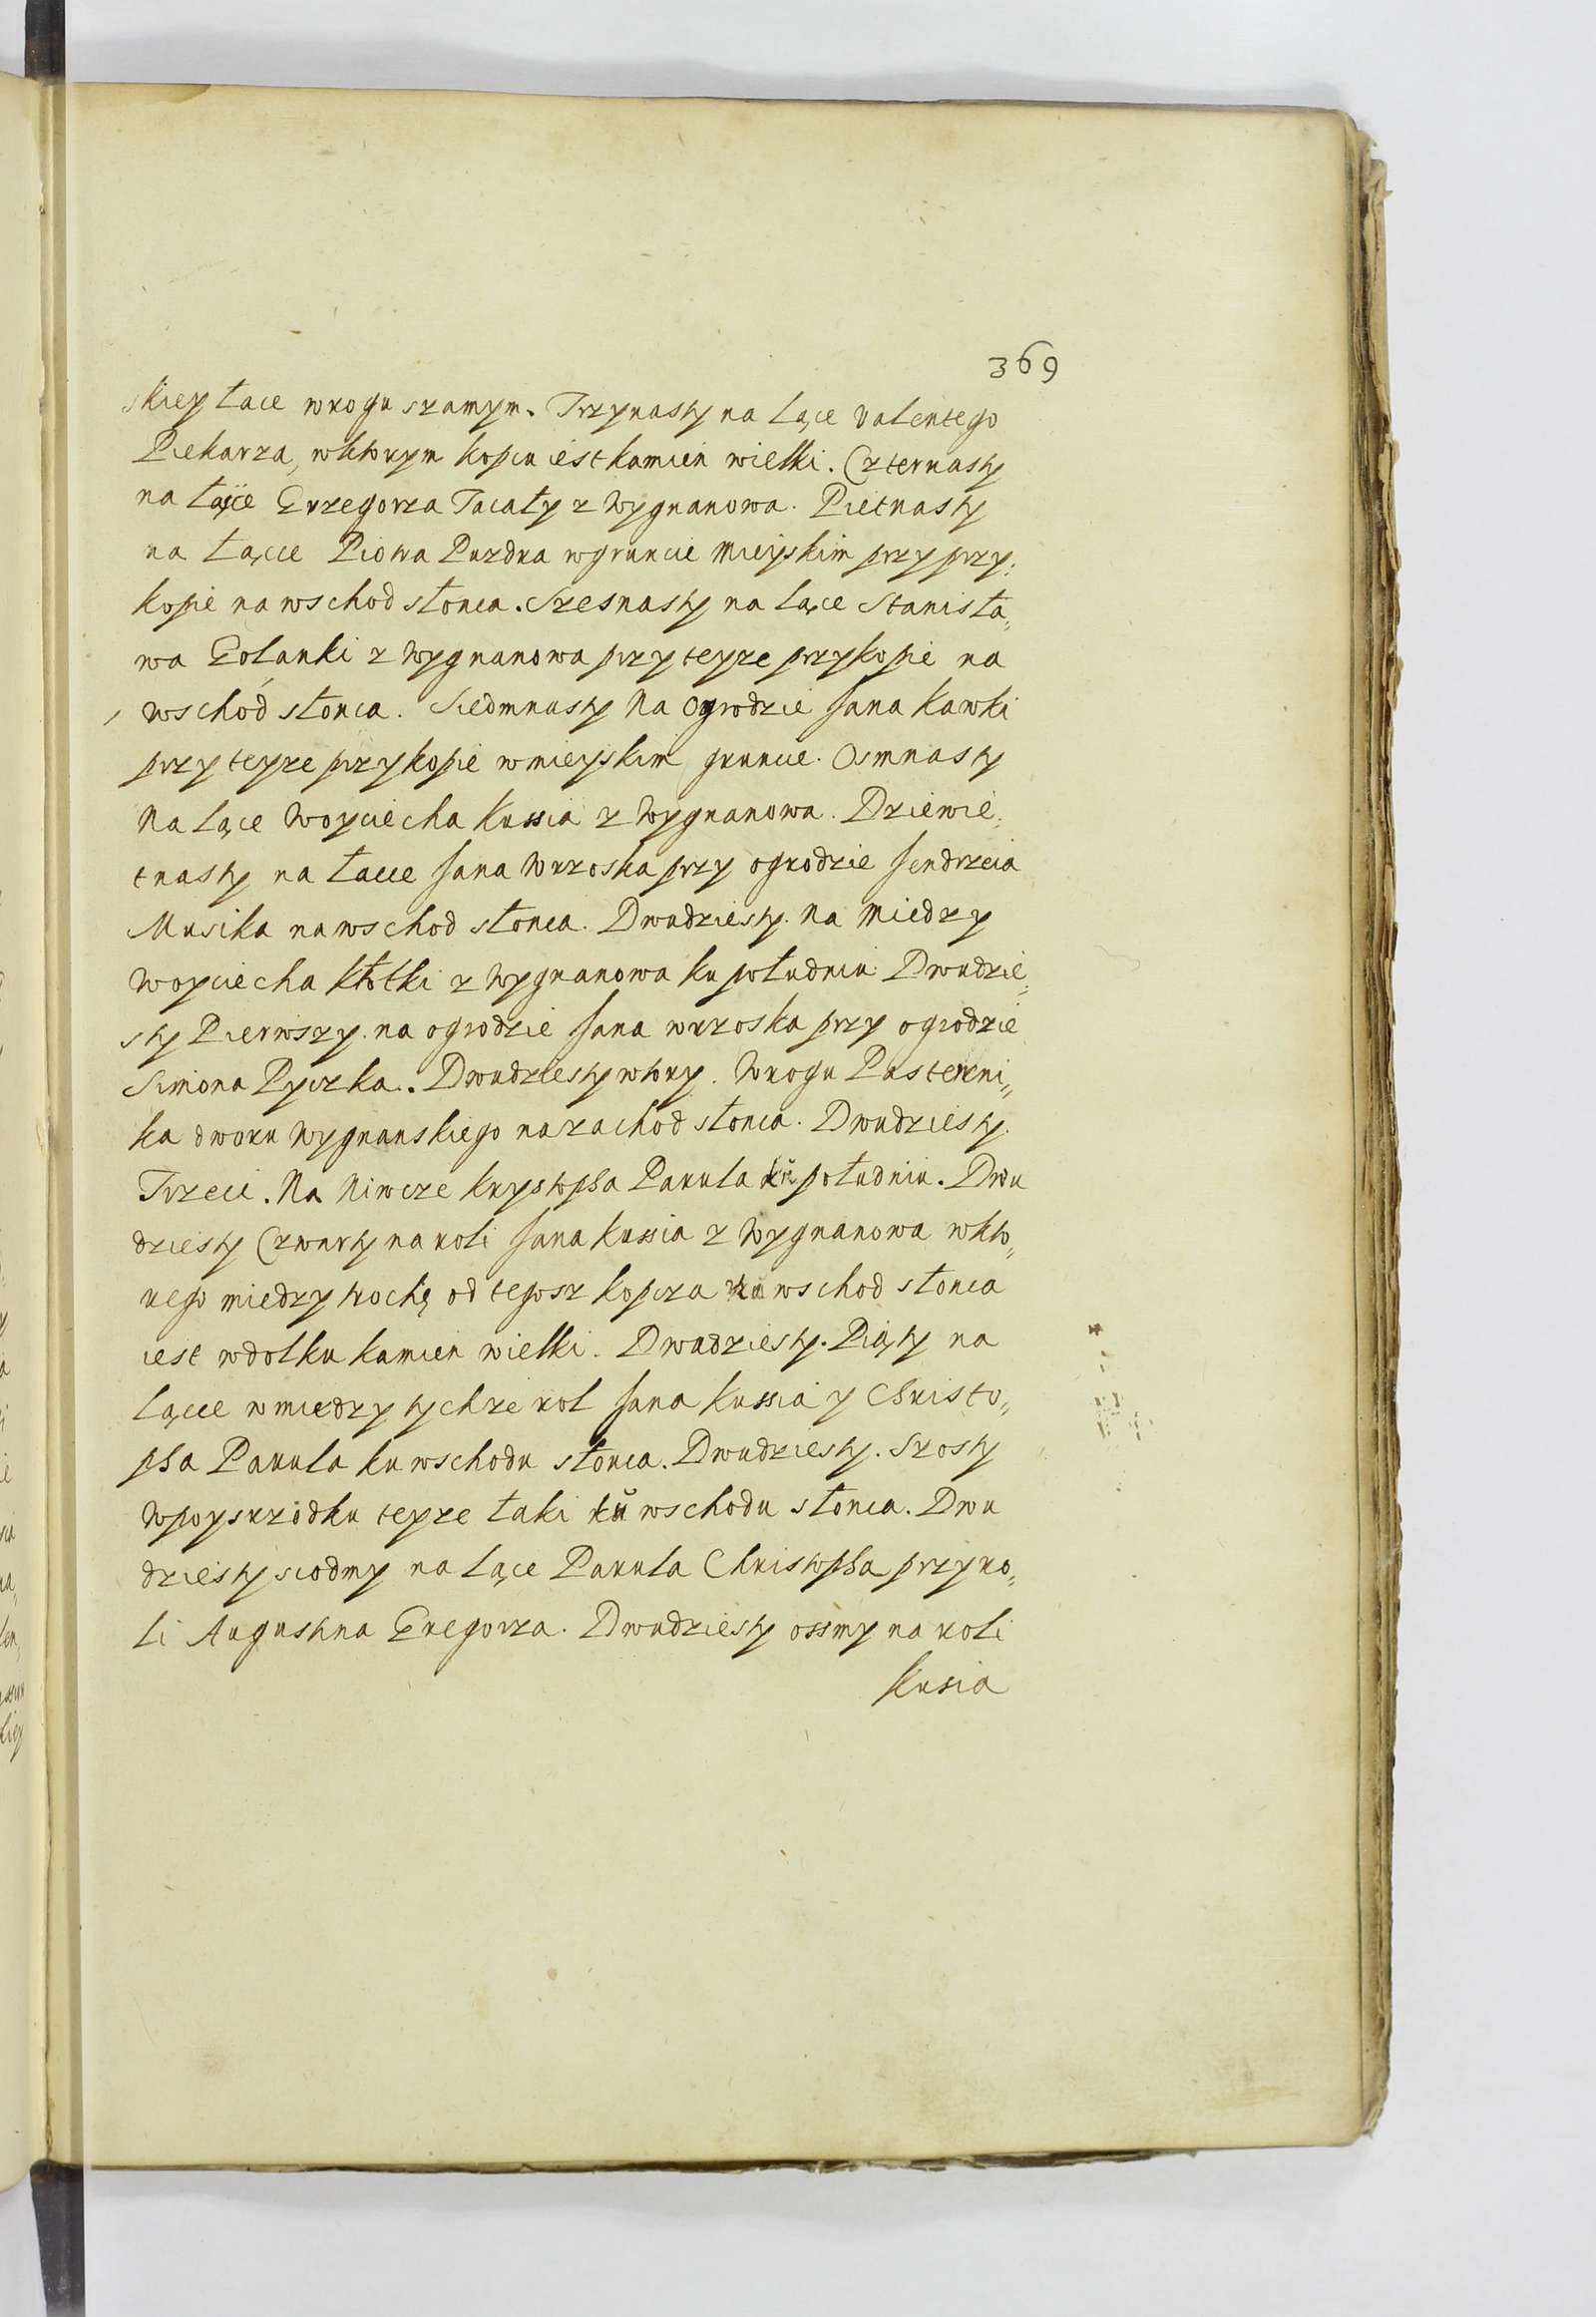 369
skiey łace w rogu szamym. Trzynasty na Lące Valentego
Piekarza, wktorym kopcu iest kamien wielki. Czternasty
na łące Grzegorza Tacały z Wygnanowa. Pietnasty
na Łącce Piotra Puzdra wgruncie Mieyskim przy przy:
kopie na wschod słonca. Szesnasty na Lące Stanisła„
wa Golanki z Wygnanowa przy teyze przykopie na
wschod słonca. Siedmnasty Na Ogrodzie Jana Kawki
przy teyze przykopie w mieyskim gruncie. Osmnasty
Na Lące Woyciecha Kussia z Wygnanowa. Dziewie„
tnasty na łacce Jana Wrzoska przy ogrodzie Jendrzeia
Musika na wschod słonca. Dwudziesty. Na Miedzy
Woyciecha Kłotki z Wygnanowa ku południu Dwudzie„
sty Pierwszy. na ogrodzie Jana wrzoska przy ogrodzie
Simona Pyczka. Dwudziesty wtory. W rogu Pasterni„
ka dworu Wygnanskiego na zachod słonca. Dwudziesty.
Trzeci. Na Niwcze Krystopha Parula ku południu. Dwu
dziesty Czwarty na roli Jana Kussia z Wygnanowa wkto„
rego miedzy trochę od tegosz kopcza na wschod słonca
iest wdołku kamien wielki. Dwudziesty. Piąty na
Lącce w miedzy tychze rol Jana Kussia y Christo„
pha Parula ku wschodu słonca. Dwudziesty. Szosty
Wpoysrzodku teyze łaki ku wschodu słonca. Dwu
dziesty siodmy na Lące Parula Christopha przy ro„
li Augustina Gregorza. Dwudziesty ossmy na roli
Kusia